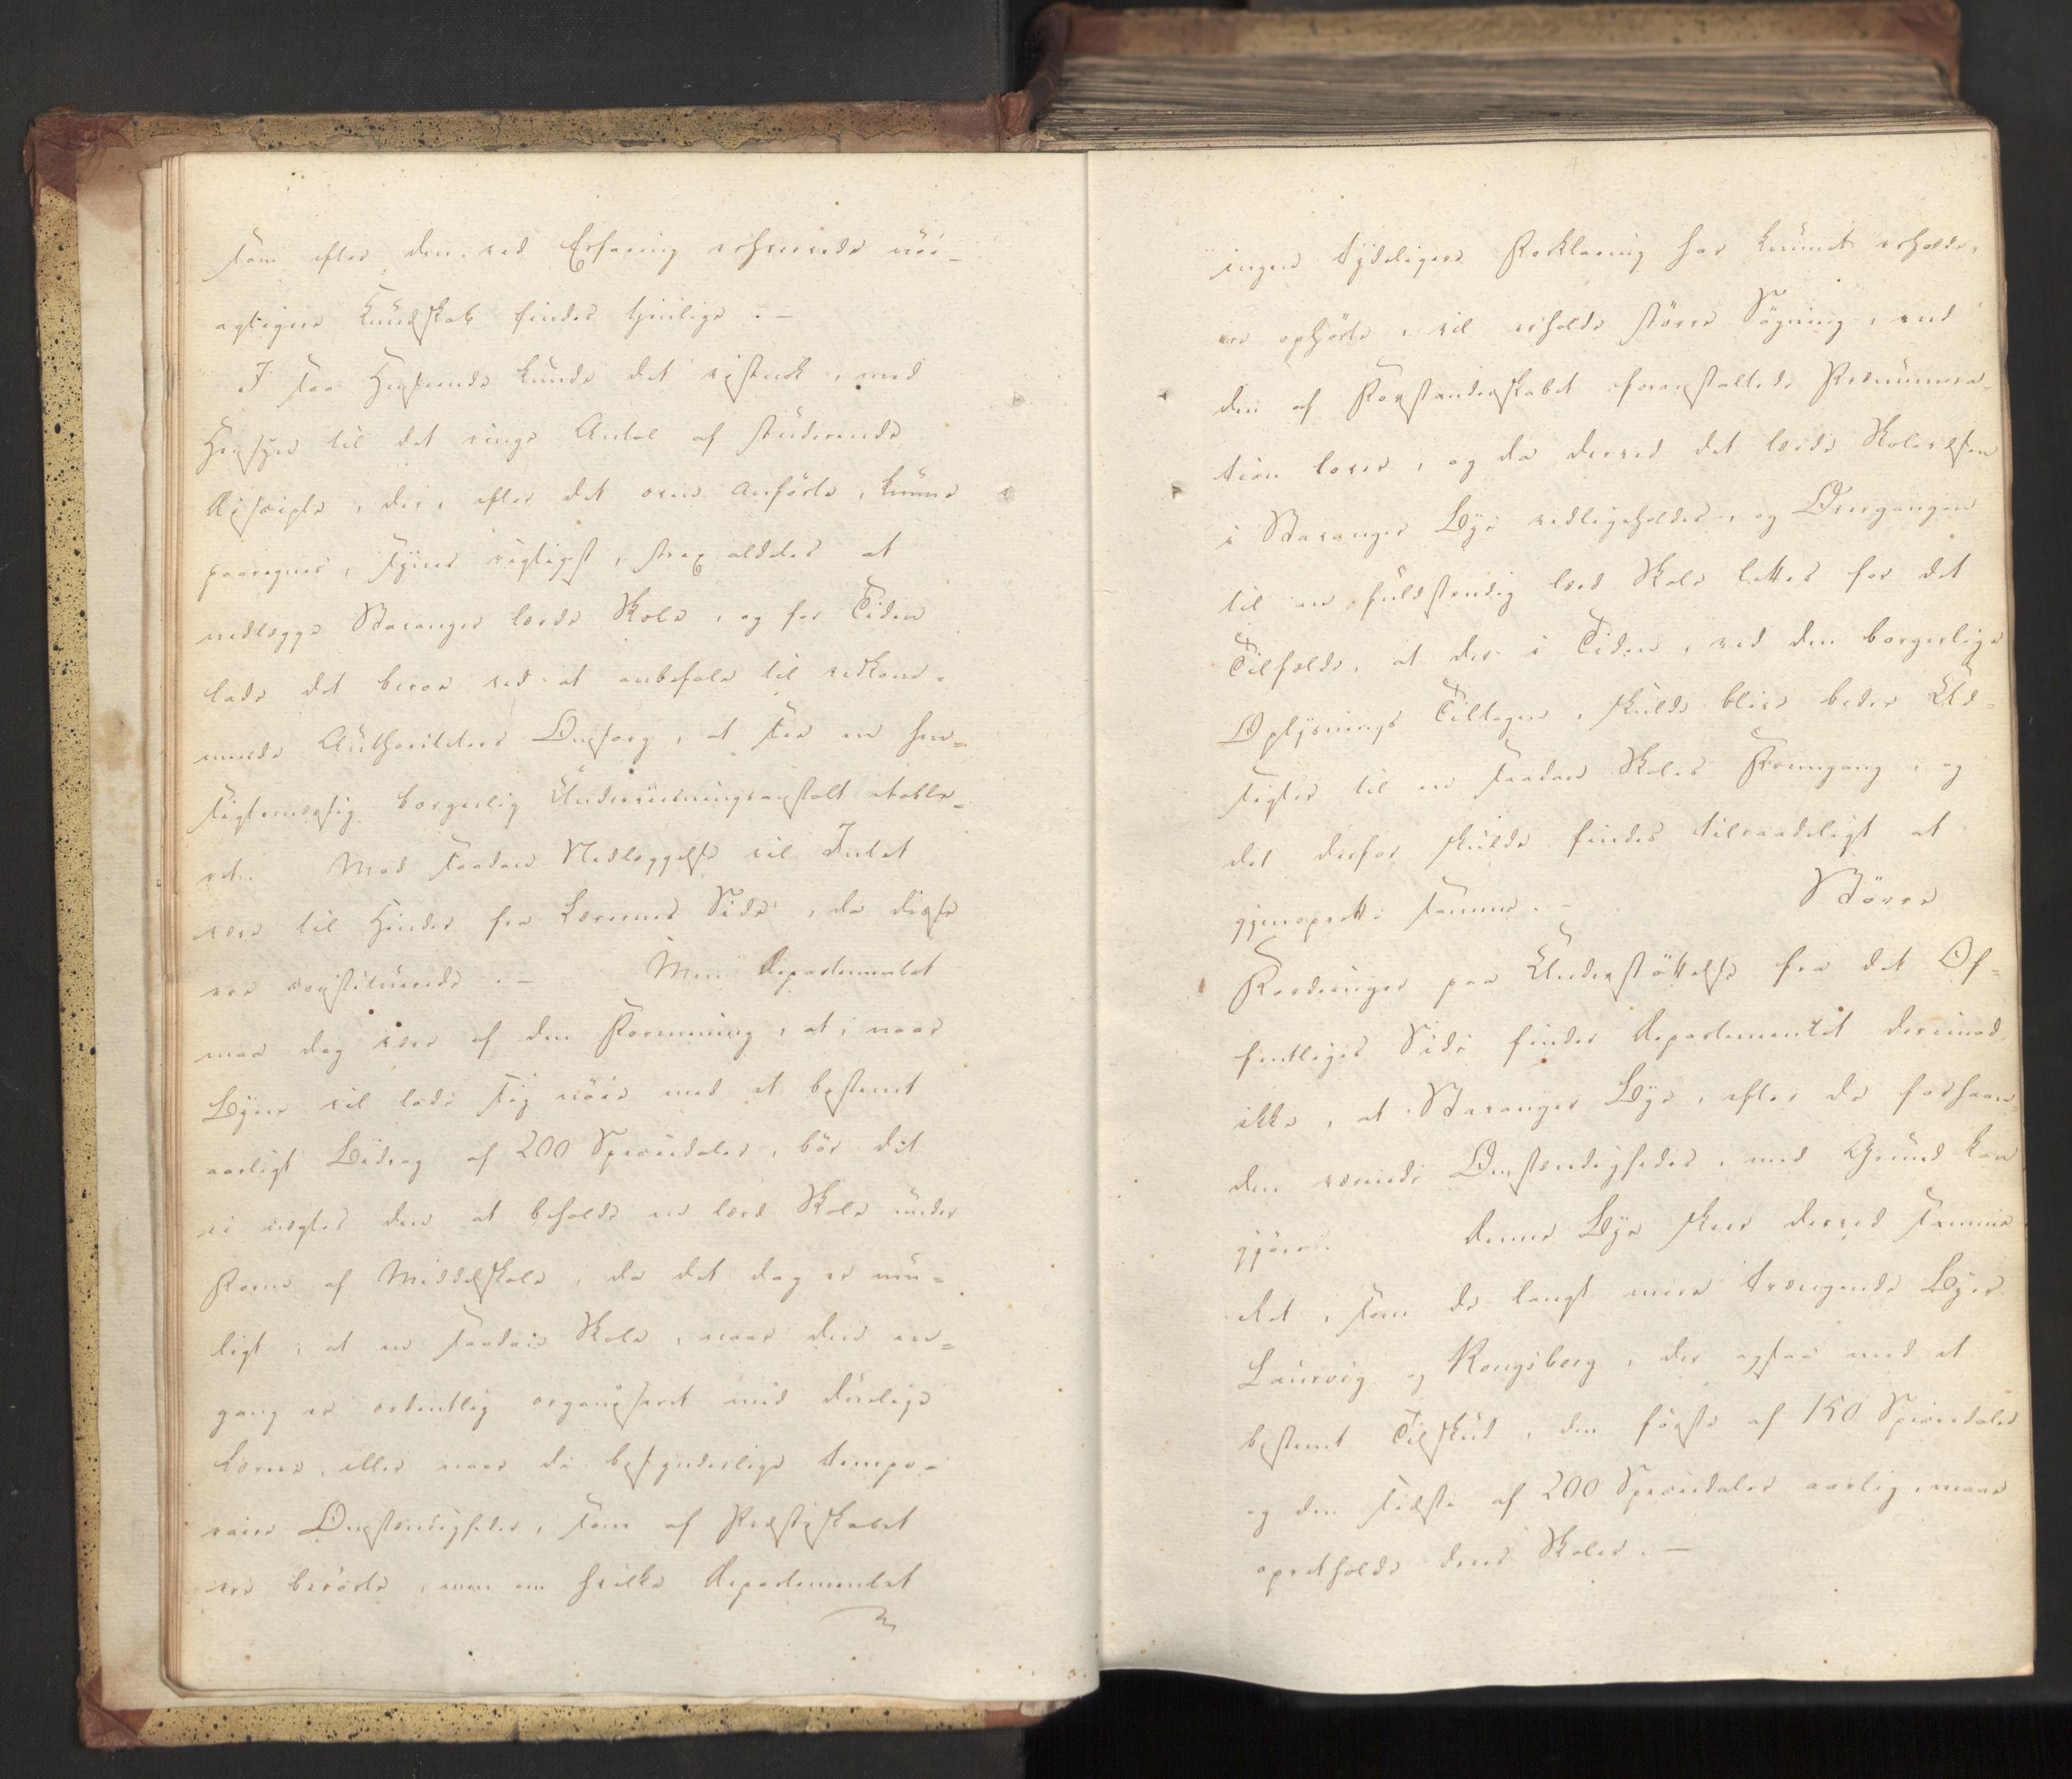 som efter den ved Erfaring erhvervede nöi-
agtigere Kundskab findes tjenlige. -
I saa Henseende kunde det vistnok, med
Hensyn til det ringe Antal af studerende
Disciple, der, efter det oven anförte, kunne
paaregnes, synes rigtigst, strax aldeles at
nedlægge Stavanger lærde Skole, og for Tiden
lade det beroe ved at anbefale til vedkom-
mende Authoriteters Omsorg, at see en hen=
sigtsmæssig borgerlig Underviisningsanstalt etable=
ret. Mod saadan Nedlæggelse vil Intet
være til Hinder fra Lærernes Side, da disse
ere constituerede. - Men Departementet
maa dog være af den Formening, at, naar
Byen vil lade sig nöie med et bestemt
aarligt Bidrag af 200 Speciedaler, bör det
ei nægtes den at beholde en lærd Skole under
Form af Middelskole, da det dog er mu=
ligt, at en saadan Skole, naar den en=
gang er ordentlig organiseret med duelige
Lærere, eller naar de besynderlige tempo-
raire Omstændigheder, som af Præsteskabet
ere berörte, men om hvilke Departementet
ingen tydeligere Forklaring har kunnet erholde,
ere ophörte, vil erholde större Sögning, end
den af Forstanderskabet foranstaltede Prænumera-
tion lover, og da derved det lærde Skolevæsen
i Stavanger Bye vedligeholdes, og Overgangen
til en fuldstændig lærd Skole lettes for det
Tilfælde, at der i Tiden, ved den borgerlige
Oplysnings Tiltagen, skulde blive bedre Ud=
sigter til en saadan Skoles Fremgang, og
det derfor skulde findes tilraadeligt at
gjenoprette samme. - Större
Fordringer paa Understöttelse fra det Of=
fentliges Side finder Departementet derimod
ikke, at Stavanger Bye, efter de forhaan=
den værende Omstændigheder, med Grund kan
gjöre. Denne Bye skeer derved samme
Ret, som de langt mere trængende Byer
Laurvig og Kongsberg, der ogsaa med et
bestemt Tilskud, den förste af 150 Speciedaler
og den sidste af 200 Speciedaler aarlig, maae
opretholde deres Skoler. -